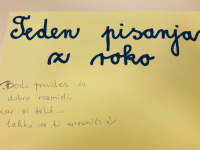 Teden pisanja
z roko
Bodi previden in
dobro razmisli,
kar si želiš....
lahko se ti uresniči